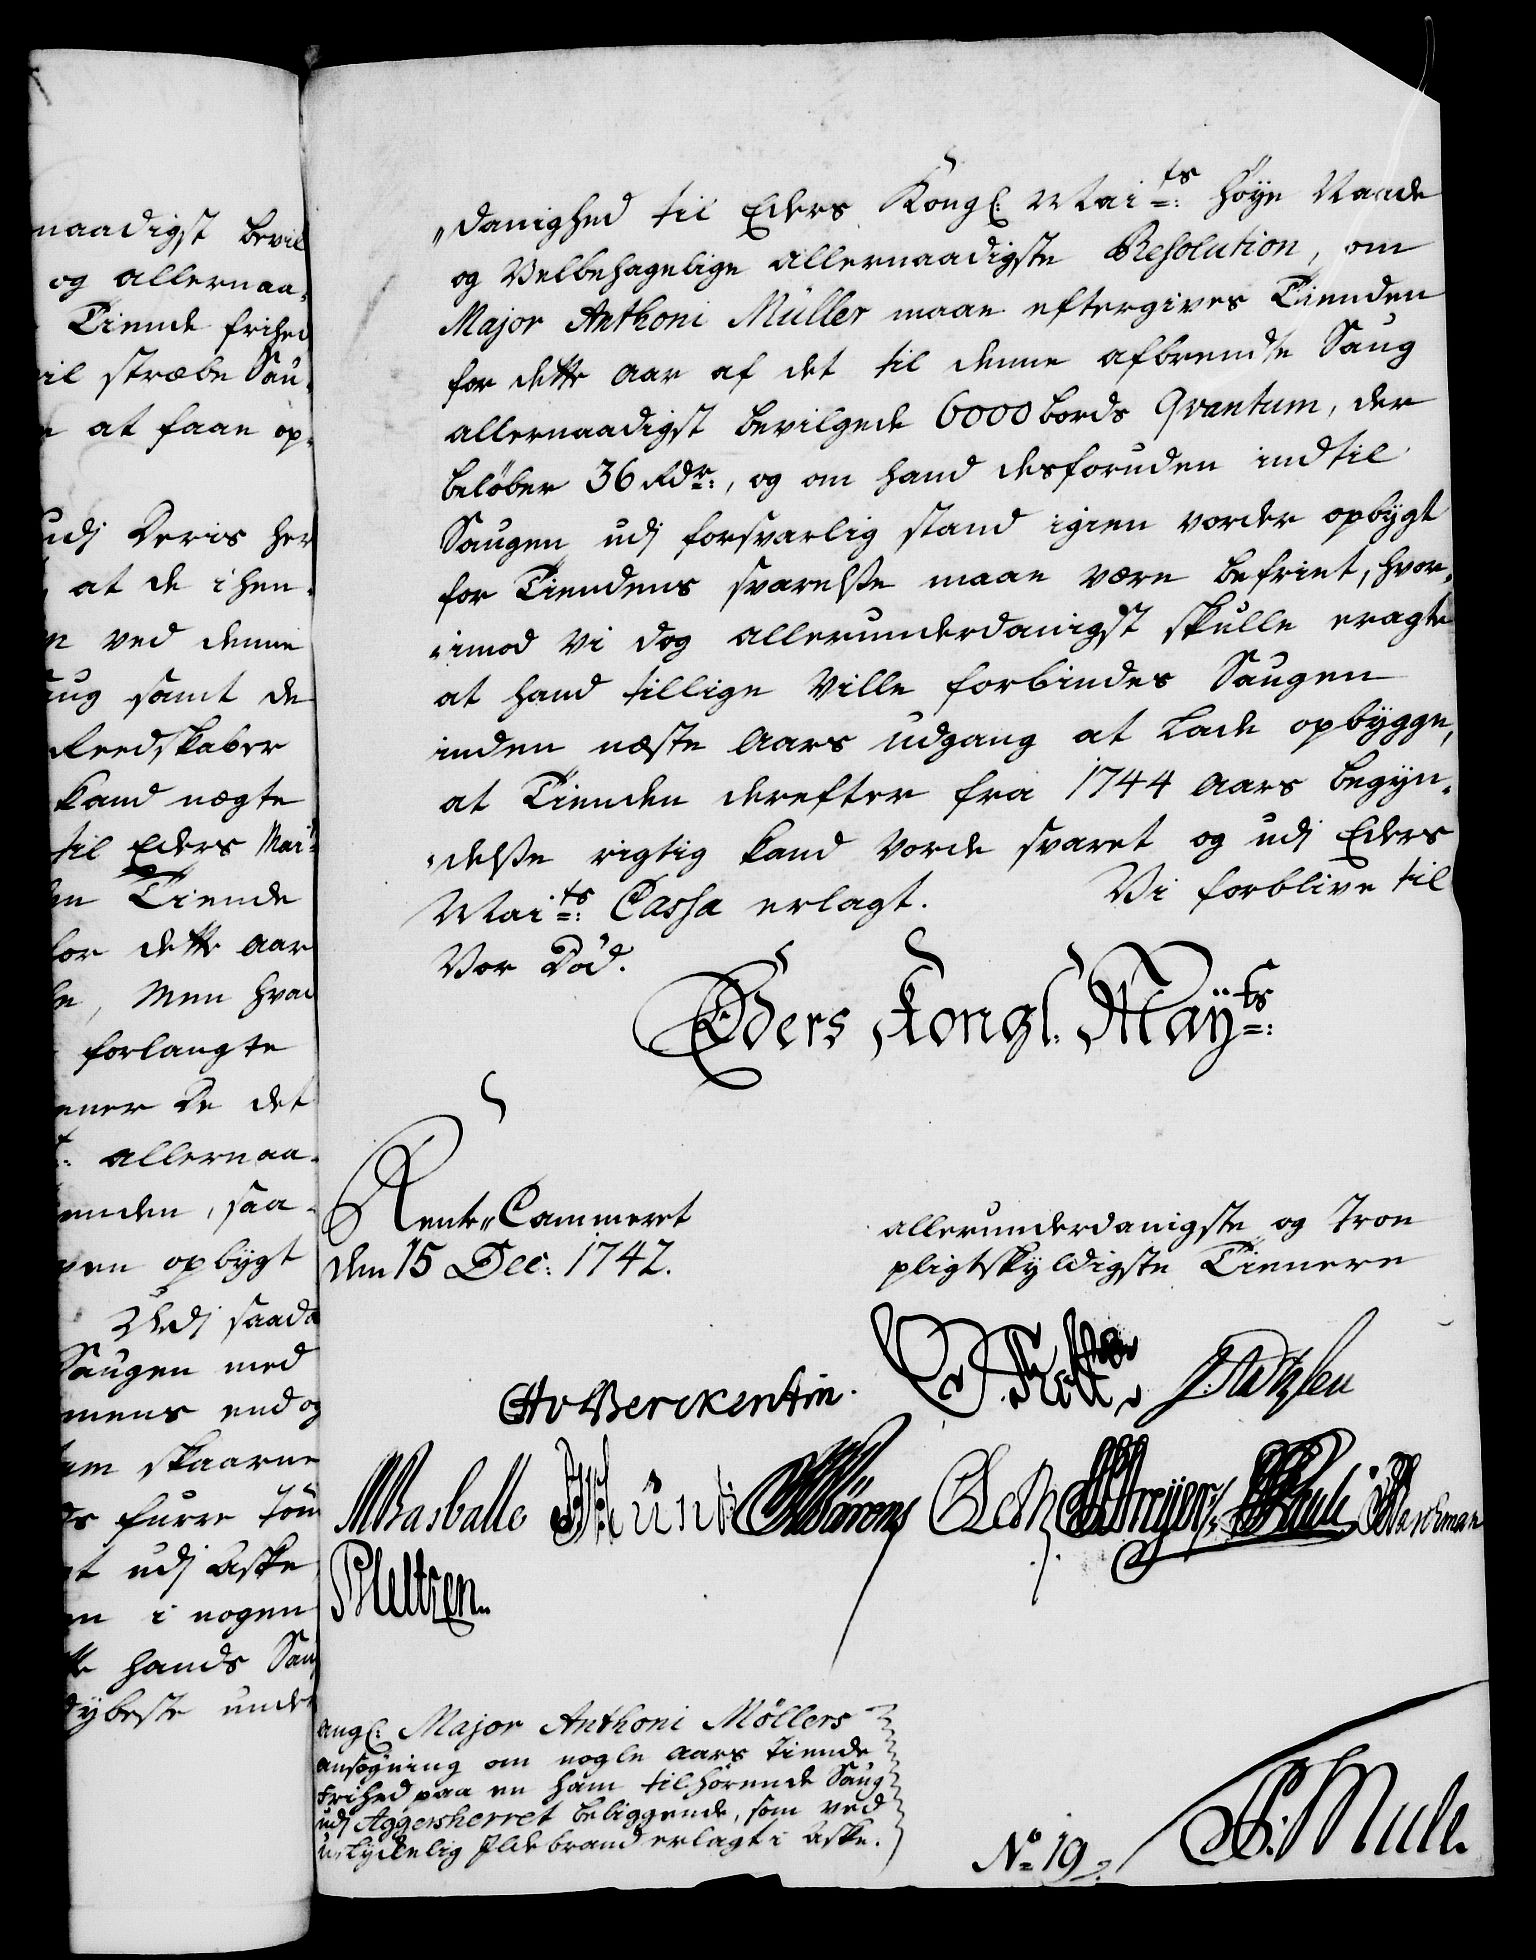 naadigst bevil
og allernaa-
Tiende frihed
vil stræbe Sau-
at faae op-
udj Deris her
at de i hen-
ved denne
Saug samt de
Reedskaber
kand nægte
til Eders Mai
Tiende
for dette Aar
Men hvad
forlangte
De det
allernaa-
enden, saa-
opbygt
Udj saada
Saugen med
end og
skaarne
furre Töm
udj Aske
i nogen
hands Sau
dybeste under
„danighed til Eders Kongl: Maits: höye Naade
og Velbehagelige allernaadigste Resolution, om
Major Anthoni Müller maae eftergives Tienden
for dette Aar af det til denne afbrendte Saug
allernaadigst bevilgede 6000 bords Qvantum, der
belöber 36 Rdr:, og om hand desforuden indtil
Saugen udj forsvarlig stand igien vorder opbygt
for Tiendens svarelße maae være befriet, hvor-
-imod Vi dog allerunderdanigst skulle eragte
at hand tillige Ville forbindes Saugen
inden næste Aars udgang at Lade opbygge,
at Tienden derefter fra 1744 Aars begyn-
-delße rigtig kand vorde svaret og udj Eders
Maits: Cassa erlagt. Vi forblive til
Vor Död.
Eders Kongl. Mayts:
Rente„Cammeret
den 15 Dec: 1742.
allerunderdanigste og Troe
pligtskyldigste Tienere
CAvBerckentin.
MBasballe
Pauli
PHeltzen.
angl: Major Anthoni Möllers
ansögning om nogle Aars Tiende
Frihed paa en ham tilhörende Saug
udj Aggersherret beliggende, som ved
u-lydelig Ildebrand erlagt i Aske.
No 19.
P: Mule.